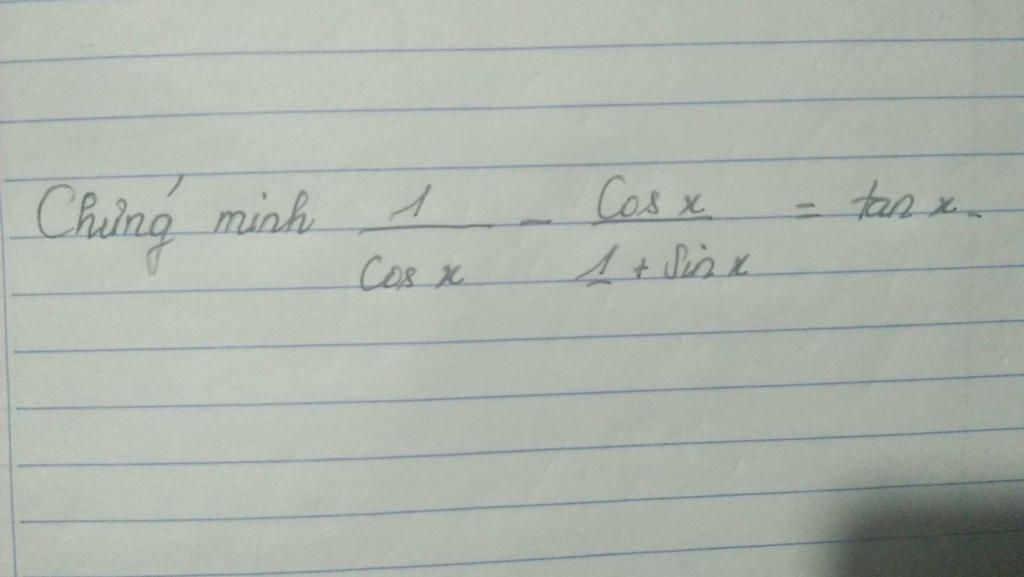 Chứng minh 1/Cos x - Cos x/1 + Sin x = tan x.